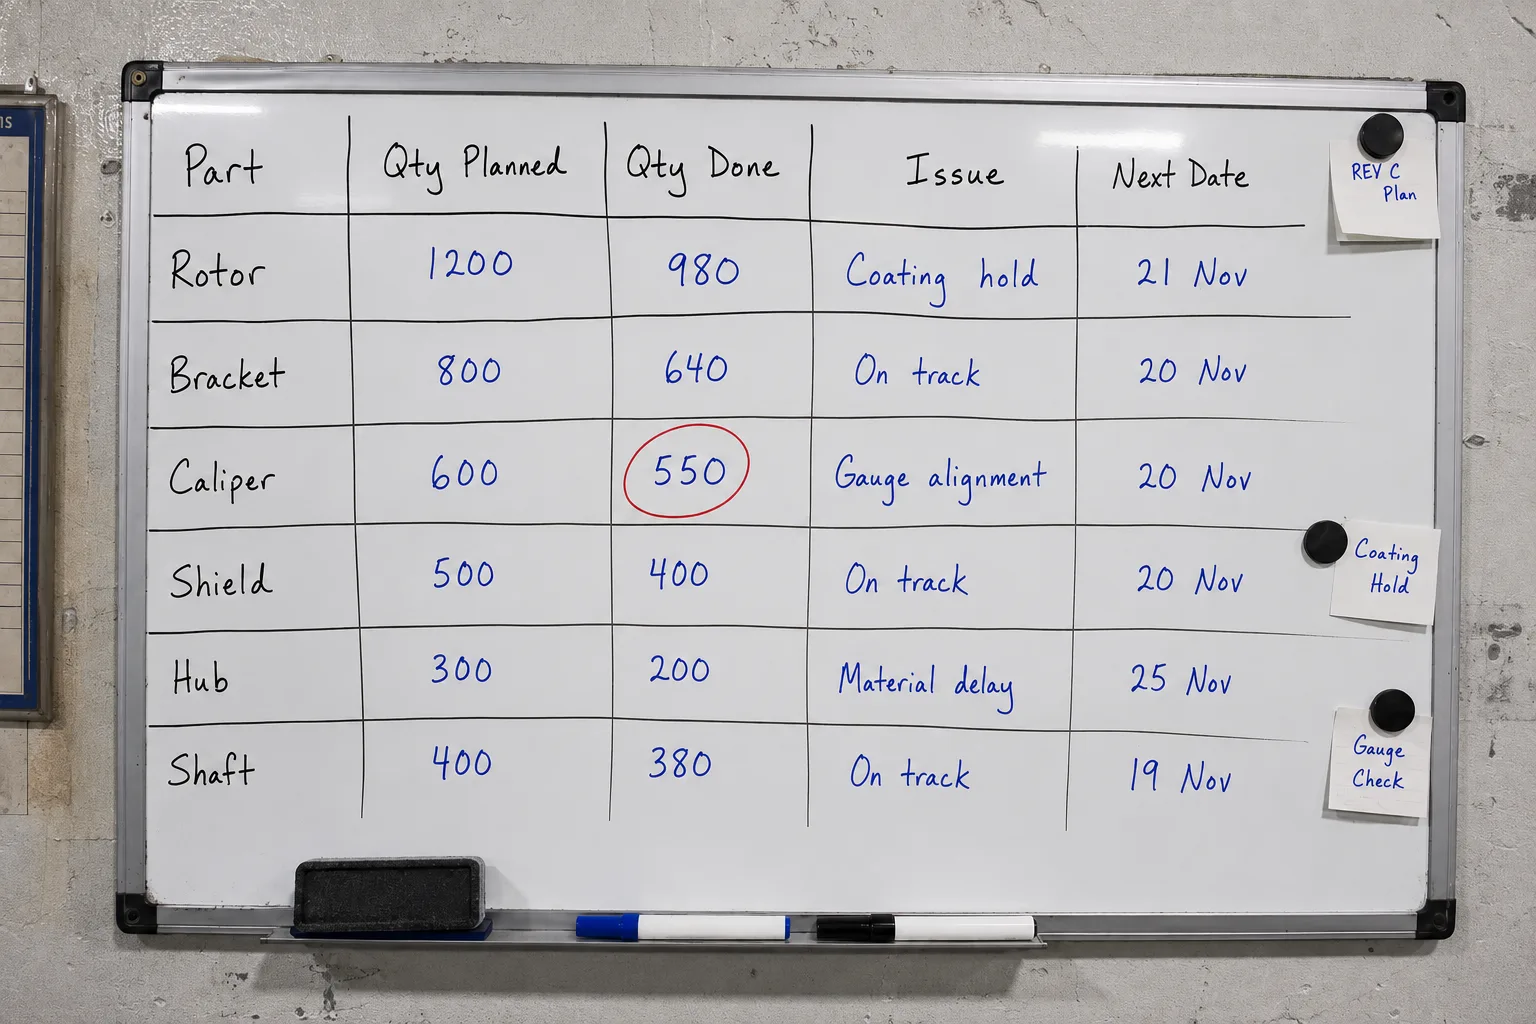 Part Qty Planned Qty Done Issue Next Date
Rotor 1200 980 Coating hold 21 Nov
Bracket 800 640 On track 20 Nov
Caliper 600 550 Gauge alignment 20 Nov
Shield 500 400 On track 20 Nov
Hub 300 200 Material delay 25 Nov
Shaft 400 380 On track 19 Nov
REV C
Plan
Coating
Hold
Gauge
Check